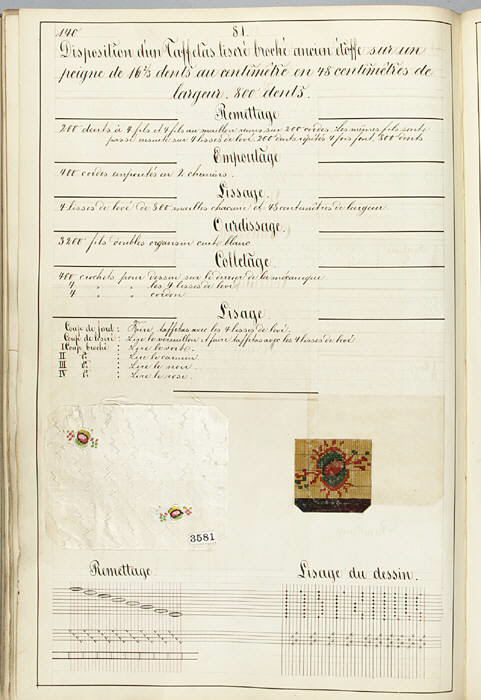 140
81.
Disposition d'un Taffetas liseré broché ancien étoffe sur un
peigne de 16 2/3 dents au centimètre en 48 centimètres de
largeur. 800 dents.
Remettage
200 dents à 4 fils et 4 fils au maillon remis sur 200 cordes. Les mêmes fils sont
passé ensuite sur 4 lisses de levé 200 dents répétés 4 fois font 800 dents
Empoutage
400 cordes empoutés en 2 chemins.
Lissage.
4 lisses de levé de 800 mailles chacune et 48 centimètres de largeur
Ourdissage.
3200 fils doubles organsin cuit blanc
Colletage.
400 crochets pour dessin sur le derrière de la mécanique
4 " " les 4 lisses de levé
4 " " cordon
Lisage
Coup de fond : Faire taffetas avec les 4 lisses de levé.
Coup de liseré : Lire le vermillon et faire taffetas avec les 4 lisses de levé
I Coup broché : Lire le vert.
II d° : Lire le carmin
III d° : Lire le noir.
IV d° : Lire le rose.
3581
Remettage.
Lisage du dessin.